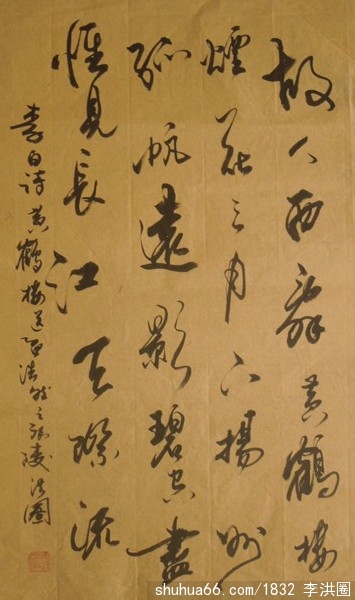 故人西辞黄鹤楼
煙花三月下揚州
孤帆遠影碧空盡
惟見長江天際流
李白诗黄鶴楼送孟浩然之广陵 洪圈
shuhua66.com/1832 李洪圈